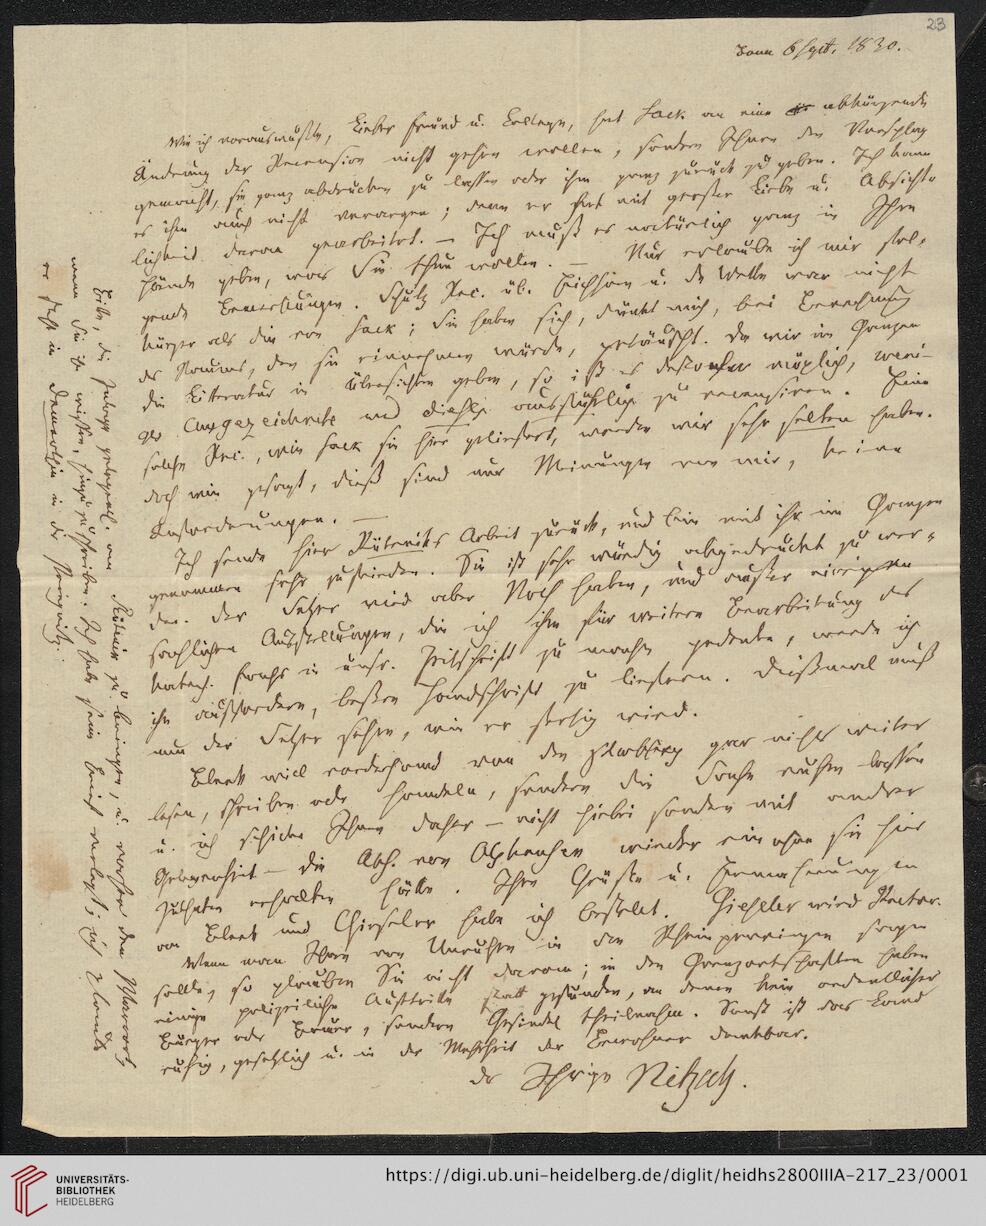 23
Bonn 6 Sept. 1830.
Wie ich vorauswußte, Lieber Freund u. College, hat Sack an eine abkürzende
Änderung der Recension nicht gehen wollen, sondern Ihnen den Vorschlag
gemacht, sie ganz abdrucken zu lassen oder ihm ganz zurück zu geben. Ich kann
es ihm auch nicht verargen; denn er hat mit großer Liebe u. Absicht-
lichkeit daran gearbeitet. – Ich muß es natürlich ganz in Ihre
Hände geben, was Sie thun wollen. – Nur erlaube ich mir fol-
gende Bemerkungen. Schulz Rec. üb. u. De Wette war nicht
kürzer als die von Sack; Sie haben sich, dünkt mich, bei Berechnung
des Raums, den sie einnehmen würde, getäuscht. Da wir im Ganzen
die Litteratur in Übersichten geben, so ist es desto eher möglich, weni-
ges Ausgezeichnete und dieses ausführlich zu recensiren. Eine
solche Rec., wie Sack sie hier geliefert, werden wir sehr selten haben.
Doch wie gesagt, dieß sind nur Meinungen von mir, keine
Anforderungen. –
Ich sende hier Rüteniks Arbeit zurück, und bin mit ihr im Ganzen
genommen sehr zufrieden. Sie ist sehr würdig abgedruckt zu wer-
den. Der Setzer wird aber Noth haben, und außer einigen
sachlichen Ausstellungen, die ich ihm für weitere Bearbeitung des
katech. Fachs in unsr. Zeitschrift zu machen gedenke, werde ich
ihn auffordern, beßere Handschrift zu liefern. Dießmal muß
nun der Setzer sehen, wie er fertig wird.
Bleek will vorderhand von den gar nichts weiter
lesen, schreiben oder handeln, sondern die Sache ruhen lassen
u. ich schicke Ihnen daher – nicht hiebei sondern mit andrer
Gelegenheit – die Abh. von wieder ein ohne sie hier
zu erhalten hätte. Ihre Grüße u. Ermahnungen
an Bleek und Gieseler habe ich bestellt. Gieseler wird Rector.
Wenn man Ihnen von Unruhen in den Rheinprovinzen sagen
sollte, so glauben Sie nicht daran; in den Grenzortschaften haben
einige polizeiliche Auftritte statt gefunden, an denen kein ordentlicher
Bürger oder Bauer, sondern Gesindel theilnahm. Sonst ist das Land
ruhig, gesetzlich u. in der Mehrheit der Bewohner dankbar.
der Ihrige Nitzsch.
Bitte, die Inlage gelegentl. an Rütenik zu bringen, u.
wenn Sie ihn wissen, hinzu zu schreiben. Ich habe seinen Brief verlegt; ich glaube
er steht in in der Priegnitz.
UNIVERSITÄTS-
BIBLIOTHEK
HEIDELBERG
https://digi.ub.uni-heidelberg.de/diglit/heidhs2800IIIA-217_23/0001